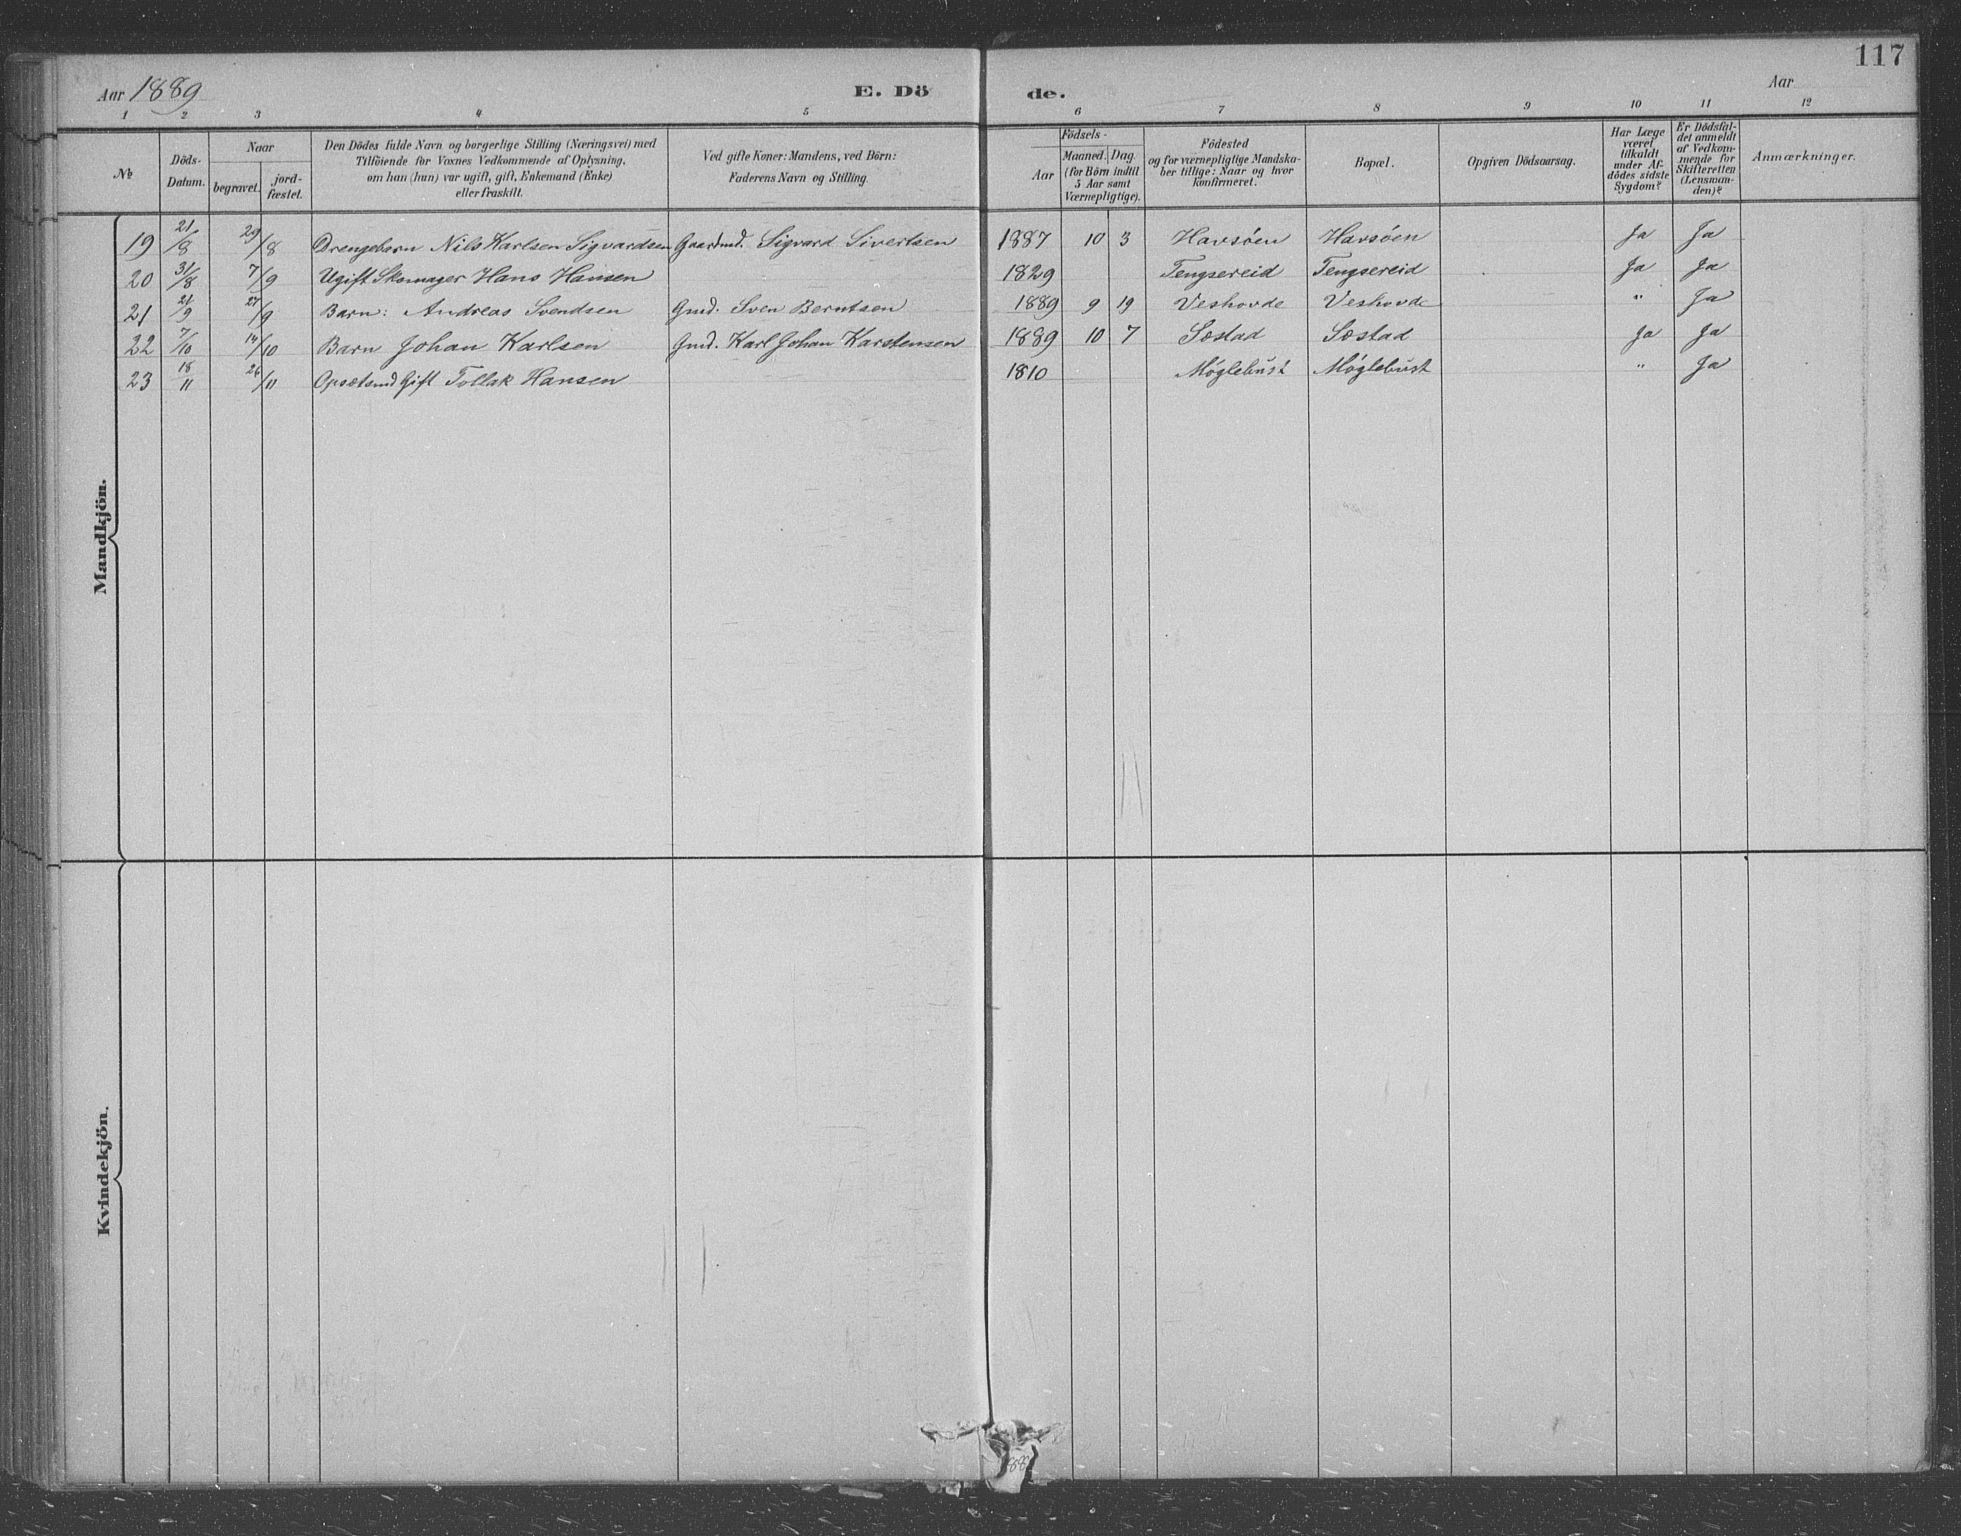 117
Aar 1889 E. Dö de. Aar
1 2 3 4 5 6 7 8 9 10 11 12
№
Döds-Datum.
Naar
begravet.
jord-fæstet.
Den Dödes fulde Navn og borgerlige Stilling (Næringsvei) med
Tilföiende for Voxnes Vedkommende af Oplysning,
om han (hun) var ugift, gift, Enkemand (Enke)
eller fraskilt.
Ved gifte Koner: Mandens, ved Börn:
Faderens Navn og Stilling.
Födsels-
Aar
Maaned.
Dag.
(for Börn indtil
5 Aar samt
Værnepligtige).
Födested
og for værnepligtige Mandska-
ber tillige: Naar og hvor
konfirmeret.
Bopæl.
Opgiven Dödsaarsag.
Har Læge
været
tilkaldt
under Af-
dödes sidste
Sygdom?
Er Dödsfal-
det anmeldt
af Vedkom-
mende for
Skifteretten
(Lensman-
den)?
Anmærkninger.
Mandkjön.
19 21/8 29/8 Drengebarn Nils Karlsen Sigvardsen Gaardmd. Sigvard Sivertsen 1887 10 3 Havsöen Havsöen Ja Ja
20 31/8 7/9 Ugift Skomager Hans Hansen 1829 Tengsereid Tengsereid Ja Ja
21 21/9 27/9 Barn: Andreas Svendsen Gmd. Sven Berntsen 1889 9 19 Veshovde Veshovde " Ja
22 7/10 14/10 Barn Johan Karlsen Gmd. Karl Johan Karstensen 1889 10 7 Sæstad Sæstad Ja Ja
23 18/11 26/11 Opsætsmd Gift Tollak Hansen 1810 Møglebust Møglebust " Ja
Kvindekjön.